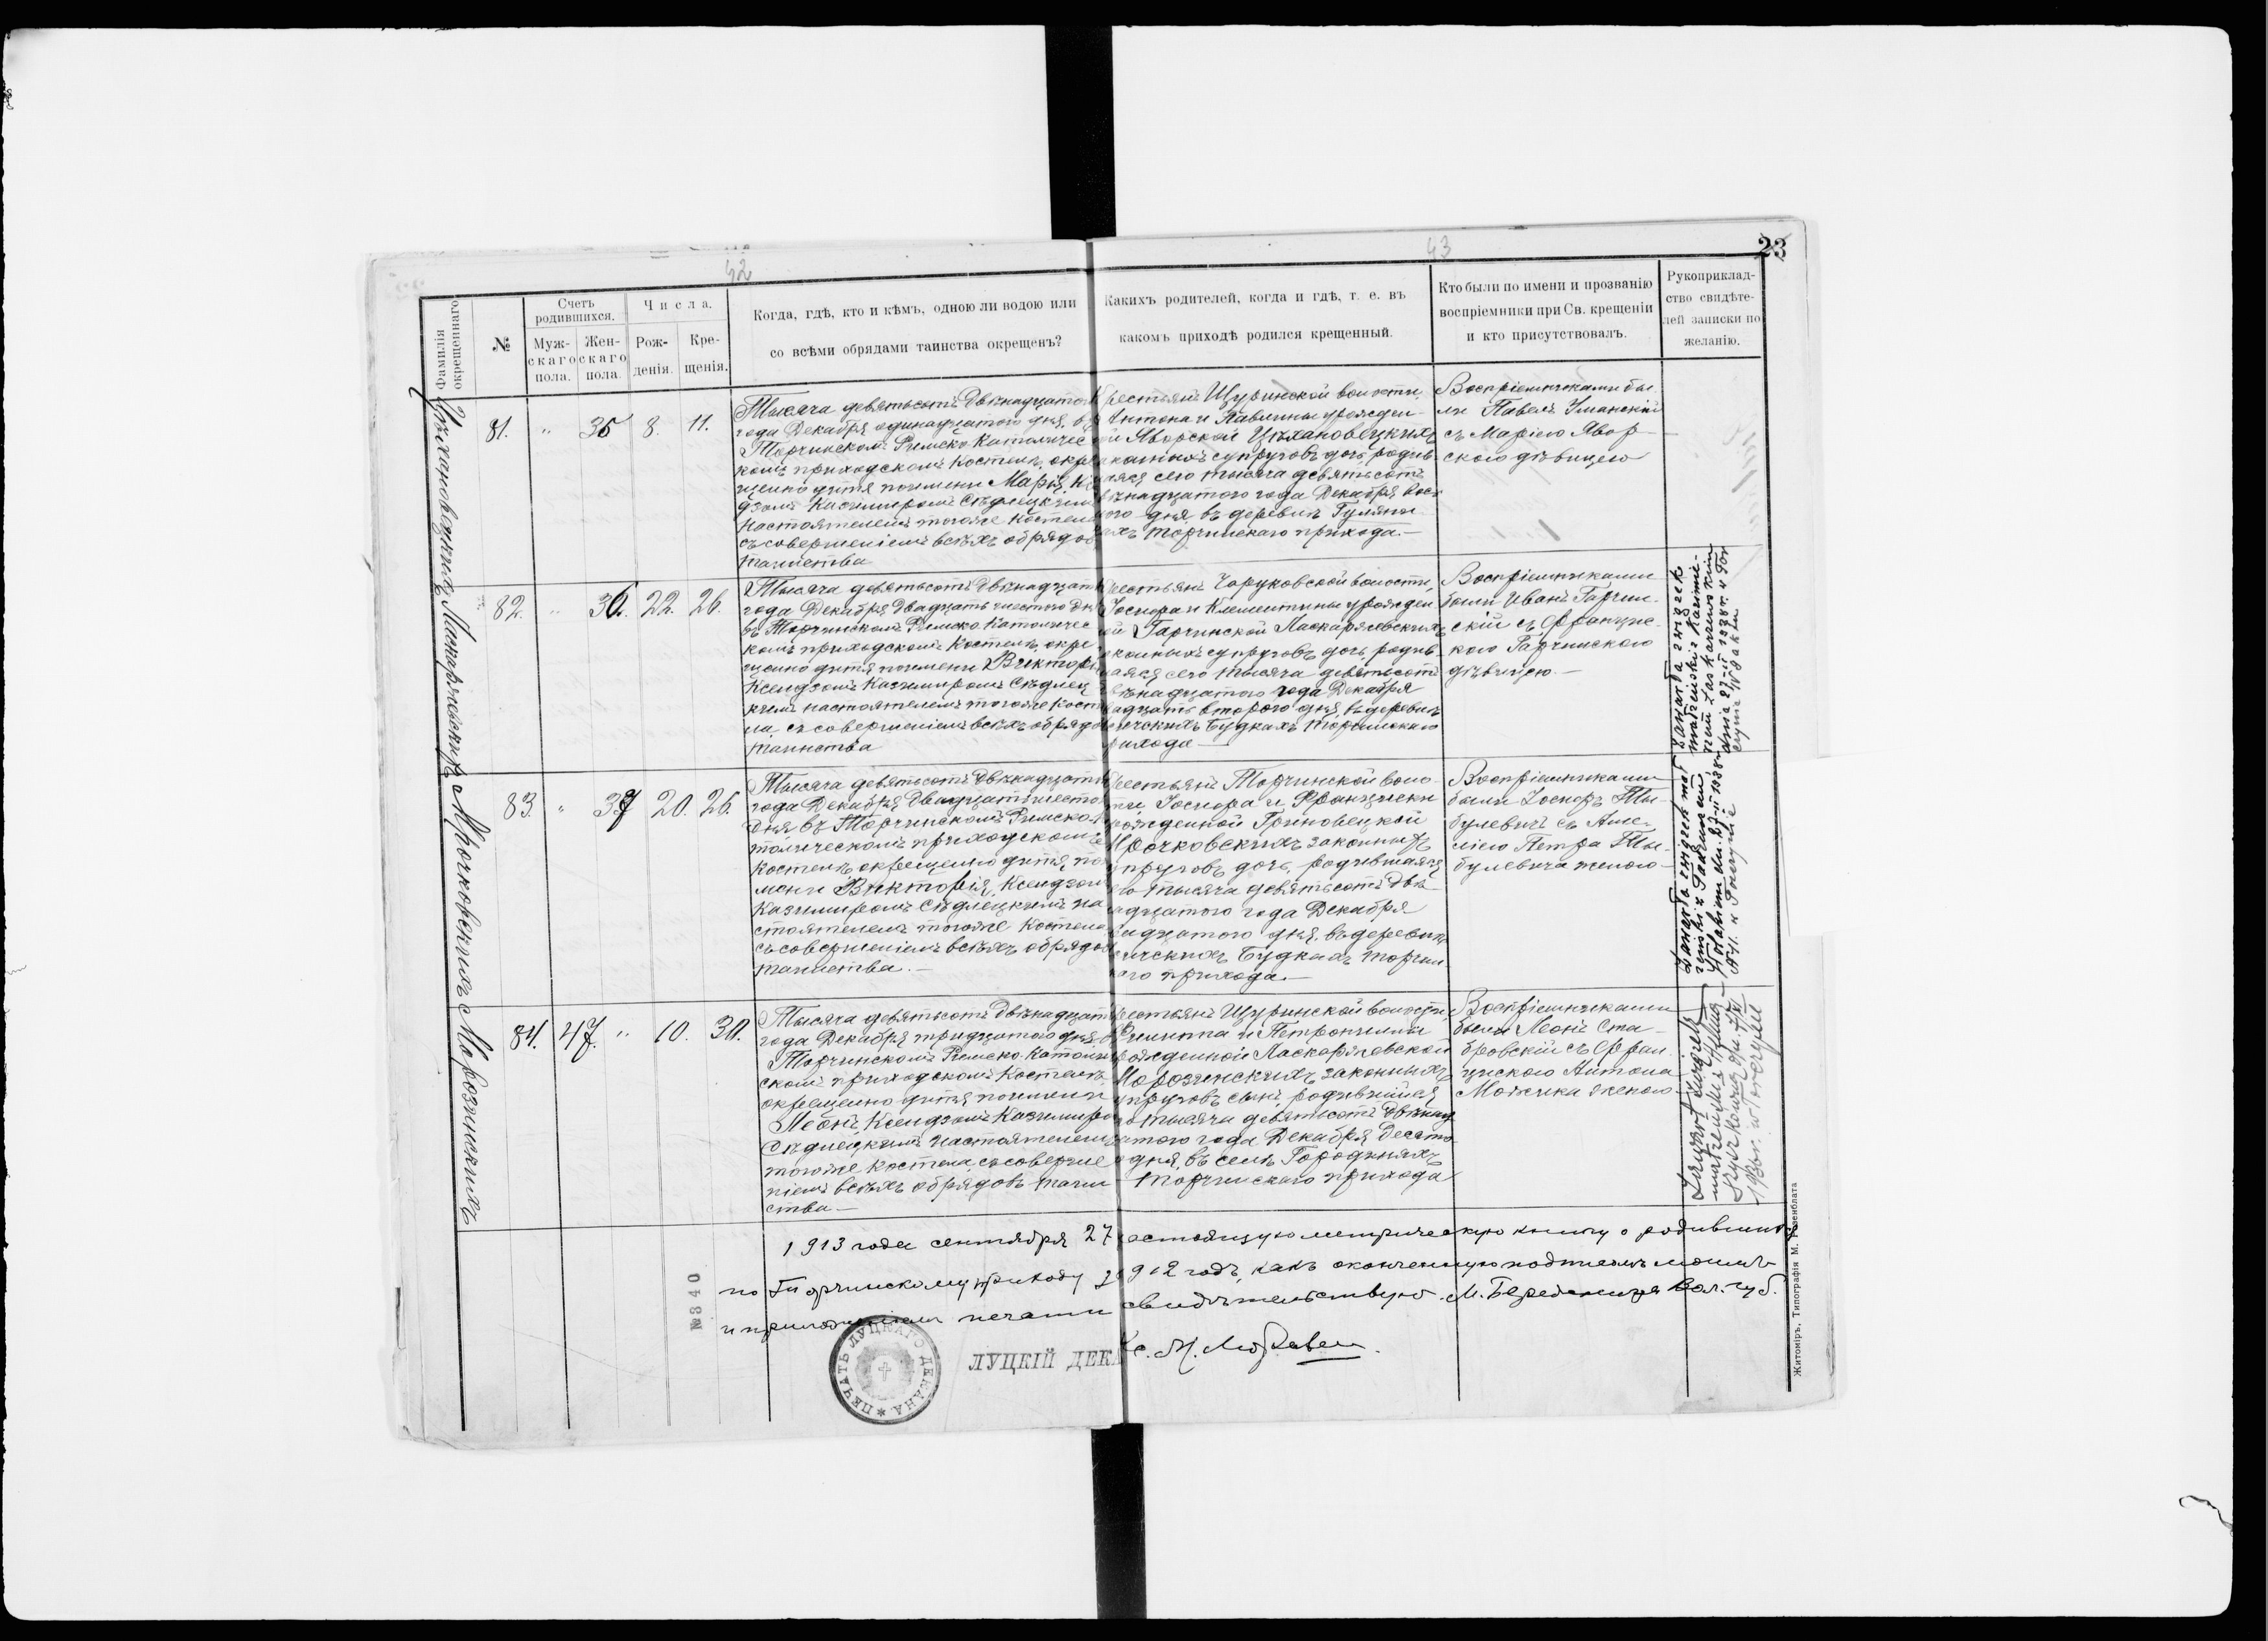 42
43
23
Фамилія окрещеннаго
№
Счетъ родившихся.
Муж-
скаго
пола.
Жен-
скаго
пола.
Числа.
Рож-
денія.
Кре-
щенія.
Когда, гдѣ, кто и кѣмъ, одною ли водою или
со всѣми обрядами таинства окрещенъ?
Какихъ родителей, когда и гдѣ, т. е. въ
какомъ приходѣ родился крещенный.
Кто были по имени и прозванію
воспріемники при Св. крещеніи
и кто присутствовалъ.
Рукоприклад-
ство свидѣте-
лей записки по
желанію.
Цѣхановецкихъ
81. " 35 8. 11.
Тысяча девятьсотъ Двѣнадцато
года Декабря одинадцатого дня, въ
Торчинскомъ Римско Католичес
комъ приходскомъ Костелѣ, окре
щено дитя поимени Марія, К
дзомъ Казимиромъ Сѣдлецкимъ
Настоятелемъ тогоже Костела
съ совершеніемъ всѣхъ обрядов
таинства
Крестьянъ Щуринской волости,
Антона и Павлины урожден-
ой Яворской Цѣхановецкихъ
законныхъ супруговъ дочь, родив-
шаяся сего тысяча девятьсотъ
двѣнадцатого года Декабря вось
мого дня, въ деревнѣ Гуляни
ахъ Торчинскаго прихода.—
Воспріемниками бы
ли Павелъ Уманскій
съ Маріею Явор-
скою дѣвицею
Ласкаржевскихъ
82. " 36. 22. 26.
Тысяча девятьсотъ Двѣнадцат
года Декабря Двадцать шестого дня
въ Торчинскомъ Римско Католичес
комъ приходскомъ Костелѣ, окре
щено дитя поимени Викторія
Ксендзомъ Казимиромъ Сѣдлец
кимъ настоятелемъ тогоже Косте
ла, съ совершеніемъ всѣхъ обрядо
таинства
Крестьянъ Чаруковской волости,
Іосифа и Клементины урожден
ой Гарчинской Ласкаржевскихъ
законныхъ супруговъ дочь, родив
шаяся сего тысяча девятьсотъ
двѣнадцатого года Декабря
двадцать второго дня, въ деревнѣ
Будкахъ Торчинскаго
прихода—
Воспріемниками
были Иванъ Гарчин-
скій съ Францис-
кою Гарчинскою
дѣвицею.—
Мрочковскихъ
83. " 37 20. 26.
Тысяча девятьсотъ Двѣнадцат
года Декабря Двадцать шесто
дня, въ Торчинскомъ Римско К
толическомъ приходскомъ
Костелѣ, окрещено дитя, по
мени Викторія, Ксендзом
Казимиромъ Сѣдлецкимъ на
стоятелемъ тогоже Костела
съ совершеніемъ всѣхъ обрядов
таинства.—
Крестьянъ Торчинской воло-
сти Іосифа и Франциски
урожденной Гриновецкой
Мрочковскихъ законныхъ
супруговъ дочь, родившаяся
сего тысяча девятьсотъ Двѣ-
надцатого года Декабря
двадцатого дня, въ деревнѣ
Будкахъ Торчин-
аго прихода.—
Воспріемниками
были Іосифъ Ты-
булевичъ съ Аме-
ліею Петра Ты-
булевича женою—
Морозинскихъ
84. 47. " 10. 30.
Тысяча девятьсотъ Двѣнадцат
года Декабря тридцатого дня, въ
Торчинскомъ Римско Католиче
скомъ приходскомъ Костелѣ,
окрещено дитя поимени
Леонъ, Ксендзомъ Казимиро
Сѣдлецкимъ настоятелемъ
тогоже Костела, съ соверше
ніемъ всѣхъ обрядовъ таин
ства—
Крестьянъ Щуринской волости
Филиппа и Петронили
урожденной Ласкаржевской
Морозинскихъ законныхъ
супруговъ сынъ, родившійся
го тысяча девятьсотъ Двѣнад
цатого года Декабря Десято
дня, въ селѣ Городиняхъ
Торчинскаго прихода
Воспріемниками
были Леонъ Ста-
бровскій съ Фран
цискою Антона
Можика женою—
Zawarła związek
małżeński z Kazimie-
rzem Łaskarzewskim
dnia 27-II 1938 r. w Tor
czynie
Zawarła związek mał
żeński z
dn. 27-II 1938 r.
w Torczynie
Zawarł związek
małżeński z
1936 r. w Torczynie
1913 года сентября 27 настоящую метрическую книгу о родившихся
по Торчинскому приходу за 1912 годъ, какъ оконченную подписомъ моимъ
и приложеніемъ печати свидѣтельствую. М. Бережница Вол. губ.
ЛУЦКІЙ ДЕКА
ПЕЧАТЬ ЛУЦКАГО ДЕКАНА
№340
Житоміръ, Типографія М. Розенблата